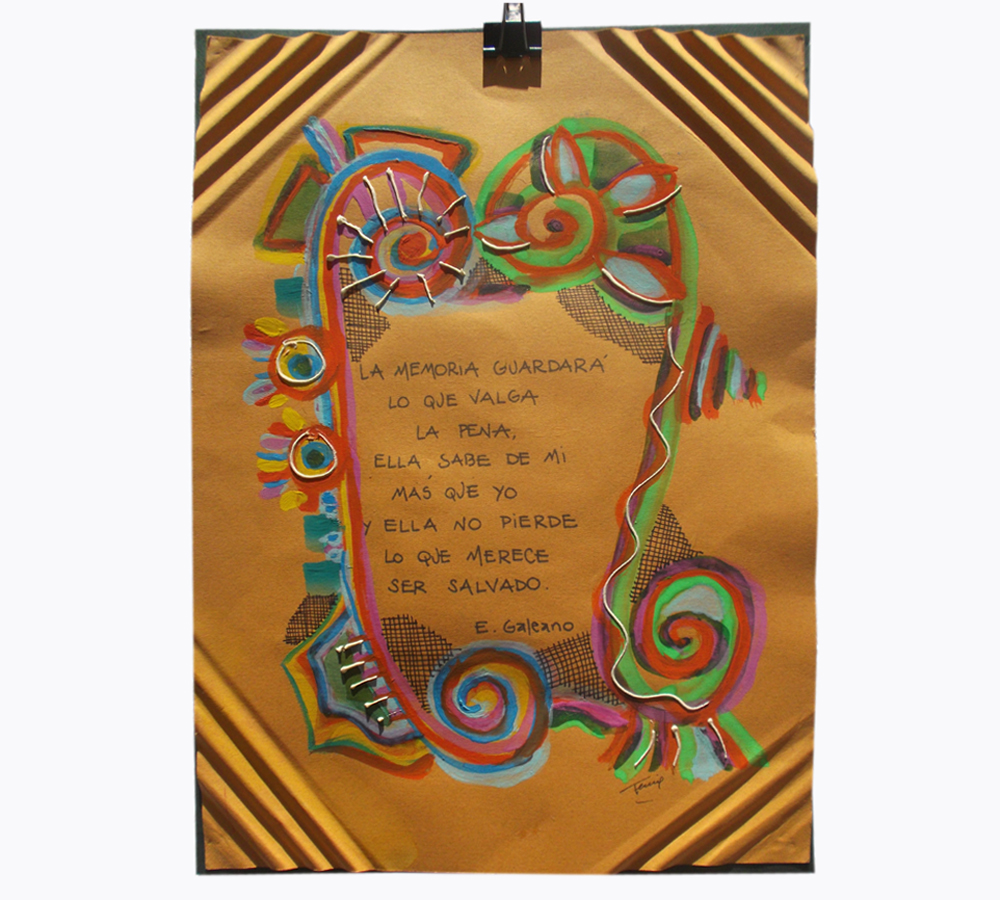 LA MEMORIA GUARDARÁ
LO QUE VALGA
LA PENA,
ELLA SABE DE MI
MAŚ QUE YO
Y ELLA NO PIERDE
LO QUE MERECE
SER SALVADO.
E. Galeano